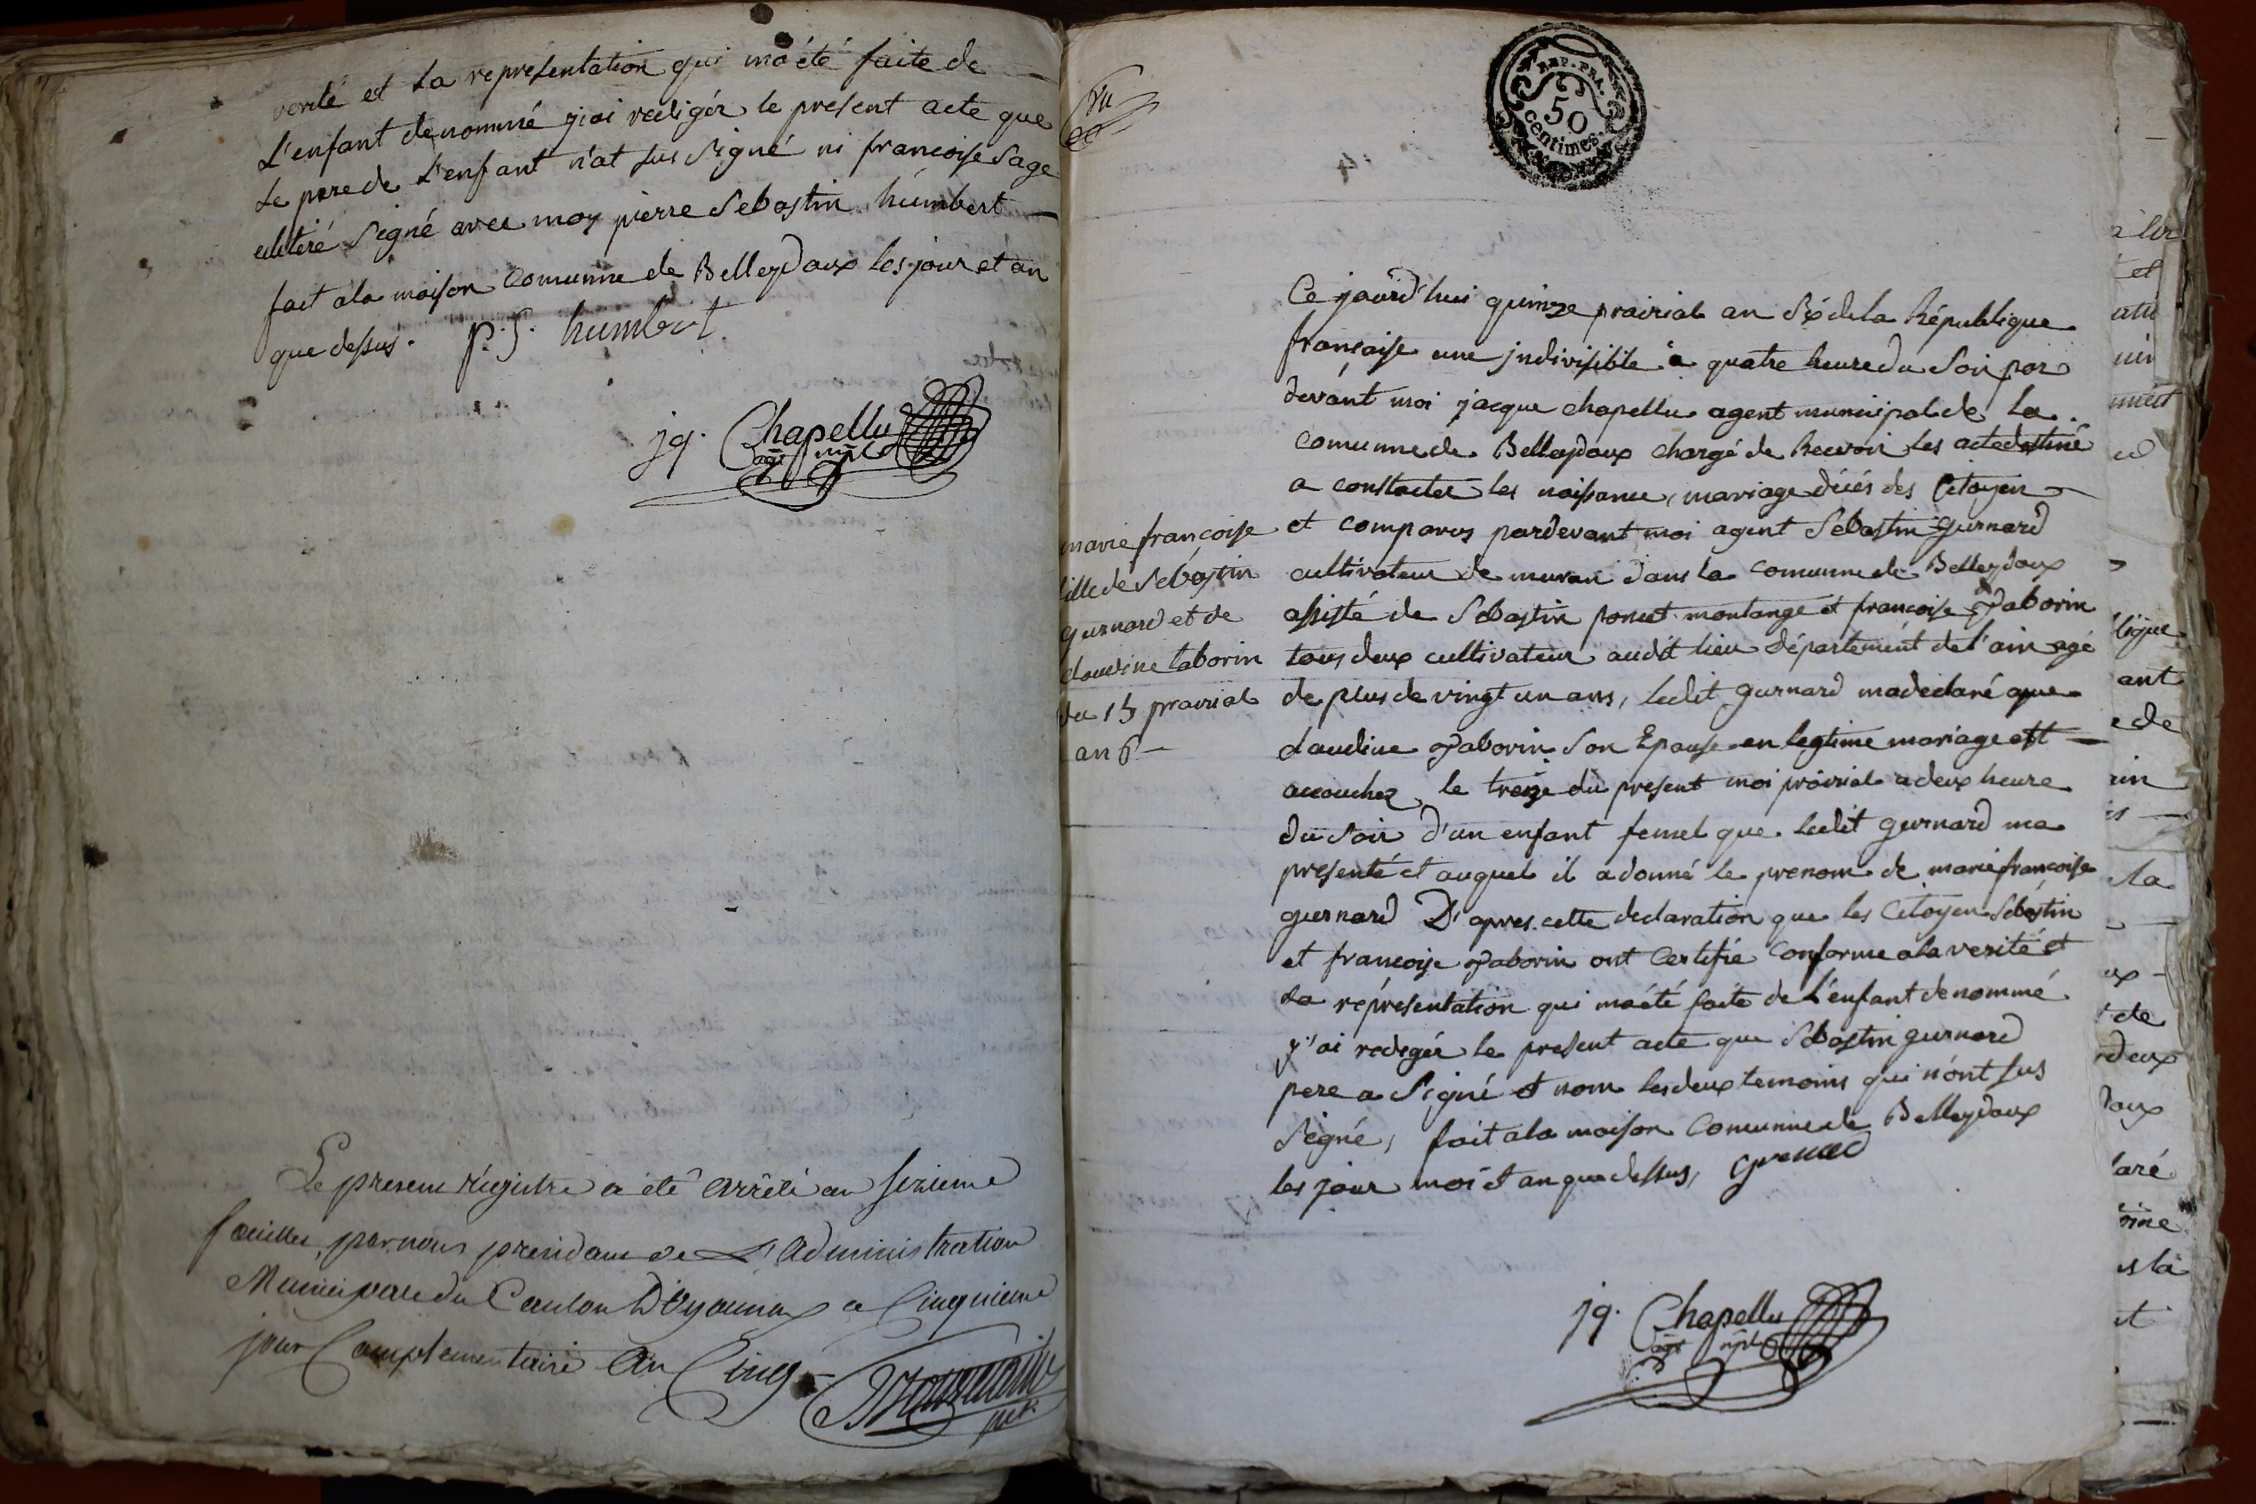 verité et la representation qui ma été faite de
L'enfant denommé j'ai redigér le present acte que
Le pere de L'enfant n'at sus signé ni francoise sage
signé avec moy pierre Sebastin humbert
fait a la maison Comunne de Belleydoux les jour et an
que dessus. p. S. humbert
jq. Chapellu
agt mpl
Le present régistre a été arrêté au seizieme
feuillet, par nous president de L'administration
Municipale du Canton D'Oyonnax ce Cinquieme
jour Complementaire an Cinq
REP. FRA.
50
centimes.
marie françoise
fille de Sebastin
gurnard et de
claudine taborin
du 15 prairial
an 6
Ce jourd'hui quinze prairial an six de la République
française une jndivisible a quatre heure du Soir par
devant moi jacque chapellu agent municipal de la
comunne de Belleydoux chargé de Recevoir les acte destiné
a constater les naissance, mariage décés des Citoyen
et comparus pardevant moi agent Sebastin gurnard
cultivateur de dans la comunne de Belleydoux
assisté de Sebastin poncet montange et francoise Taborin
tous deux cultivateur audit lieu département de l'ain agé
de plus de vingt un ans, ledit gurnard ma declaré que
claudine Taborin son Epouse en legtime mariage est
acouchez le treize du present moi prairial a deux heure
du soir d'un enfant femel que ledit gurnard ma
presenté et auquel il a donné le prenom de marie françoise
gurnard D'apres cette declaration que les Citoyen Sebastin
et francoise Taborin ont Certifié Conforme a la verité et
La répresentation qui ma été faite de L'enfant denommé
j'ai redegér le present acte que Sebastin gurnard
pere a signé et nom les deux temoins qui n'ont sus
signé, fait a la maison Comunne de Belleydoux
les jour moi et an que dessus,
jq. Chapellu
agt mpl